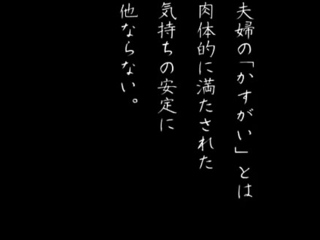 夫婦の「かすがい」とは
肉体的に満たされた
気持ちの安定に
他ならない。